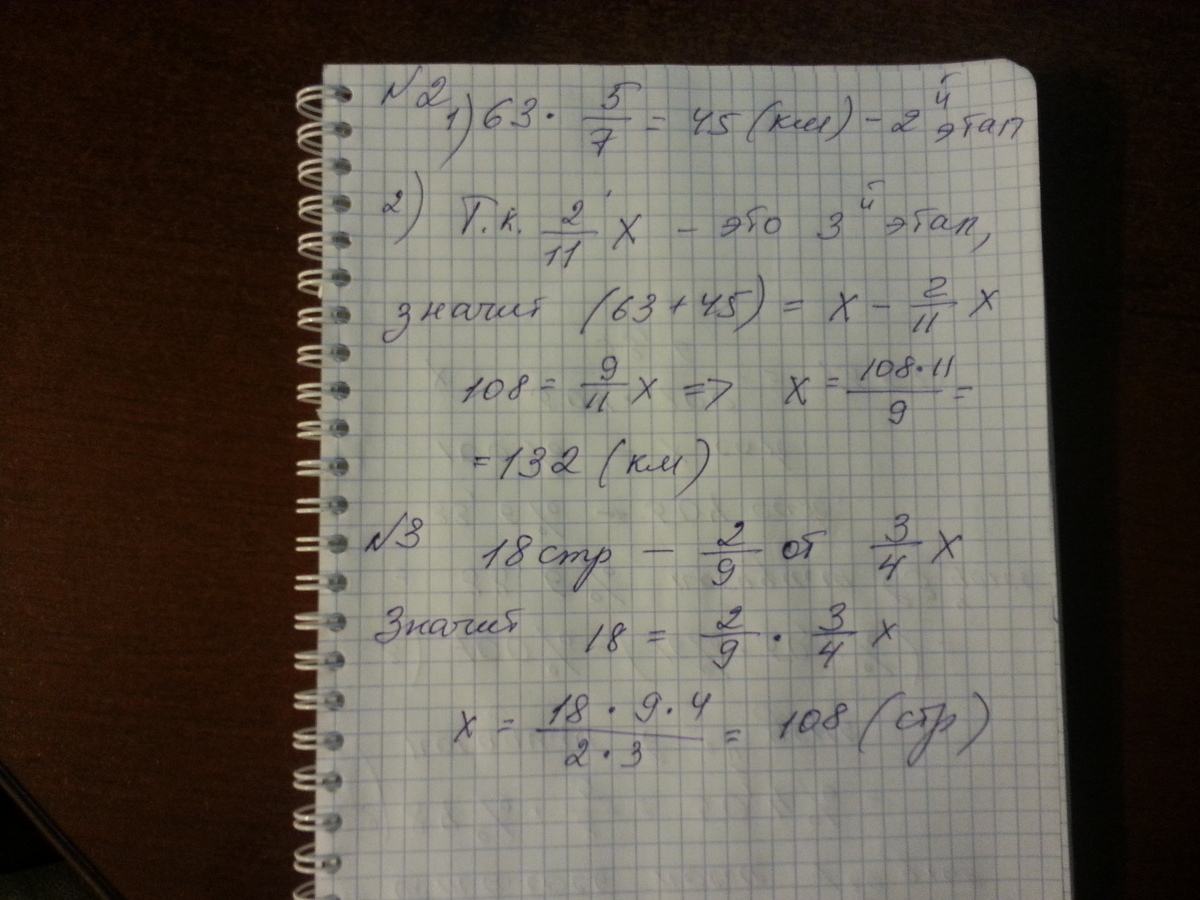 №2 1) 63 · 5/7 = 45 (км) - 2й этап
2) Т.к. 2/11 x - это 3й этап,
значит (63 + 45) = x - 2/11 x
108 = 9/11 x => x = 108·11/9 =
= 132 (км)
№3 18 стр - 2/9 от 3/4 x
Значит 18 = 2/9 · 3/4 x
x = 18 · 9 · 4 / 2 · 3 = 108 (стр)